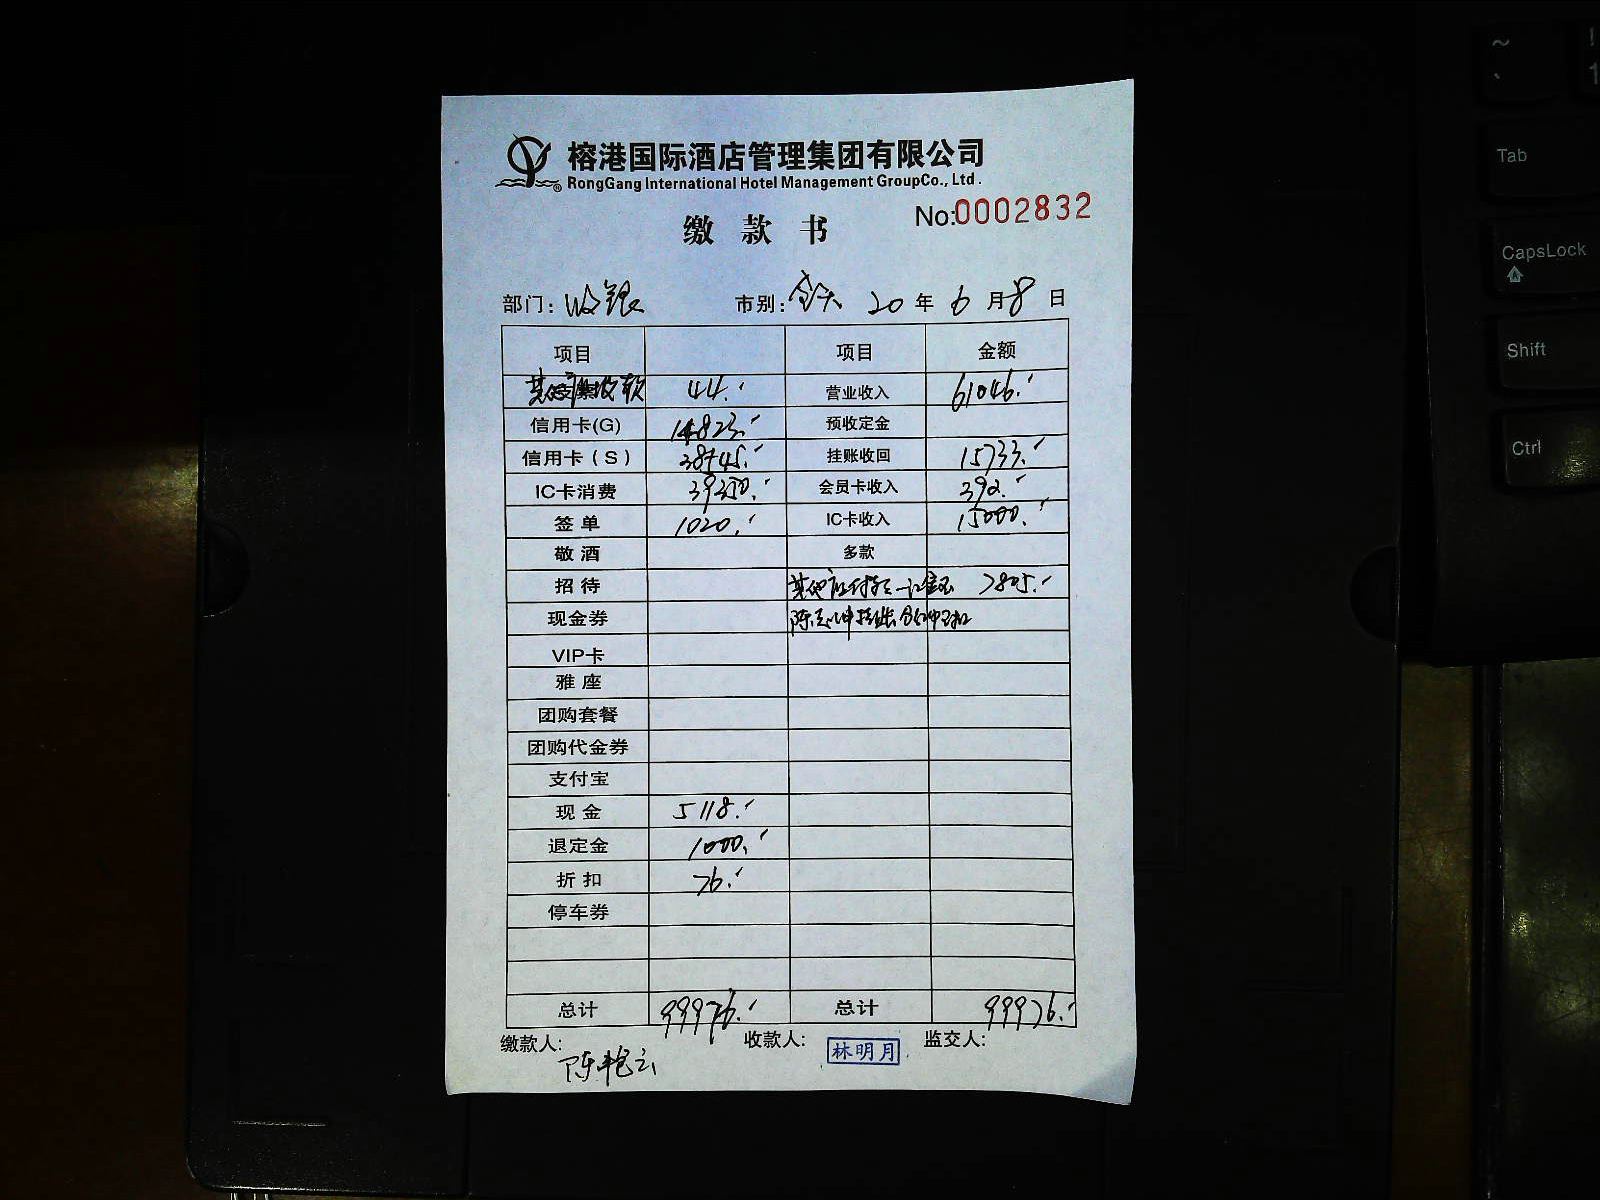 榕港国际酒店管理集团有限公司
RongGang International Hotel Management GroupCo., Ltd.
缴款书 No:0002832
部门: 收银 市别: 全天 20 年 6 月 8 日
项目 项目 金额
其他应收款 44.- 营业收入 61046.-
信用卡(G) 14823.- 预收定金
信用卡（S） 38545.- 挂账收回 15733.-
IC卡消费 39350.- 会员卡收入 392.-
签单 1020.- IC卡收入 15000.-
敬酒 多款
招待 其他应付款 7805.-
现金券
VIP卡
雅座
团购套餐
团购代金券
支付宝
现金 5118.-
退定金 1000.-
折扣 76.-
停车券
总计 99976.- 总计 99976.-
缴款人: 陈艳云 收款人: 林明月 监交人:
~
`
!
1
Tab
CapsLock
Shift
Ctrl